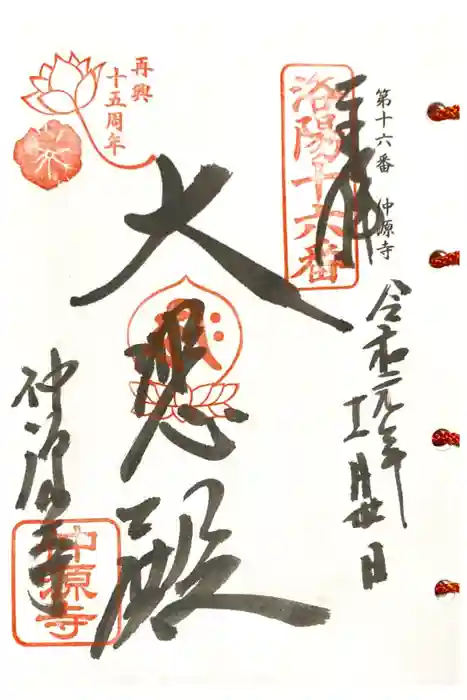 第十六番 仲源寺
奉拝
洛陽十六番
令和元年十一月廿日
再興
十五周年
大悲殿
仲源寺
仲源寺